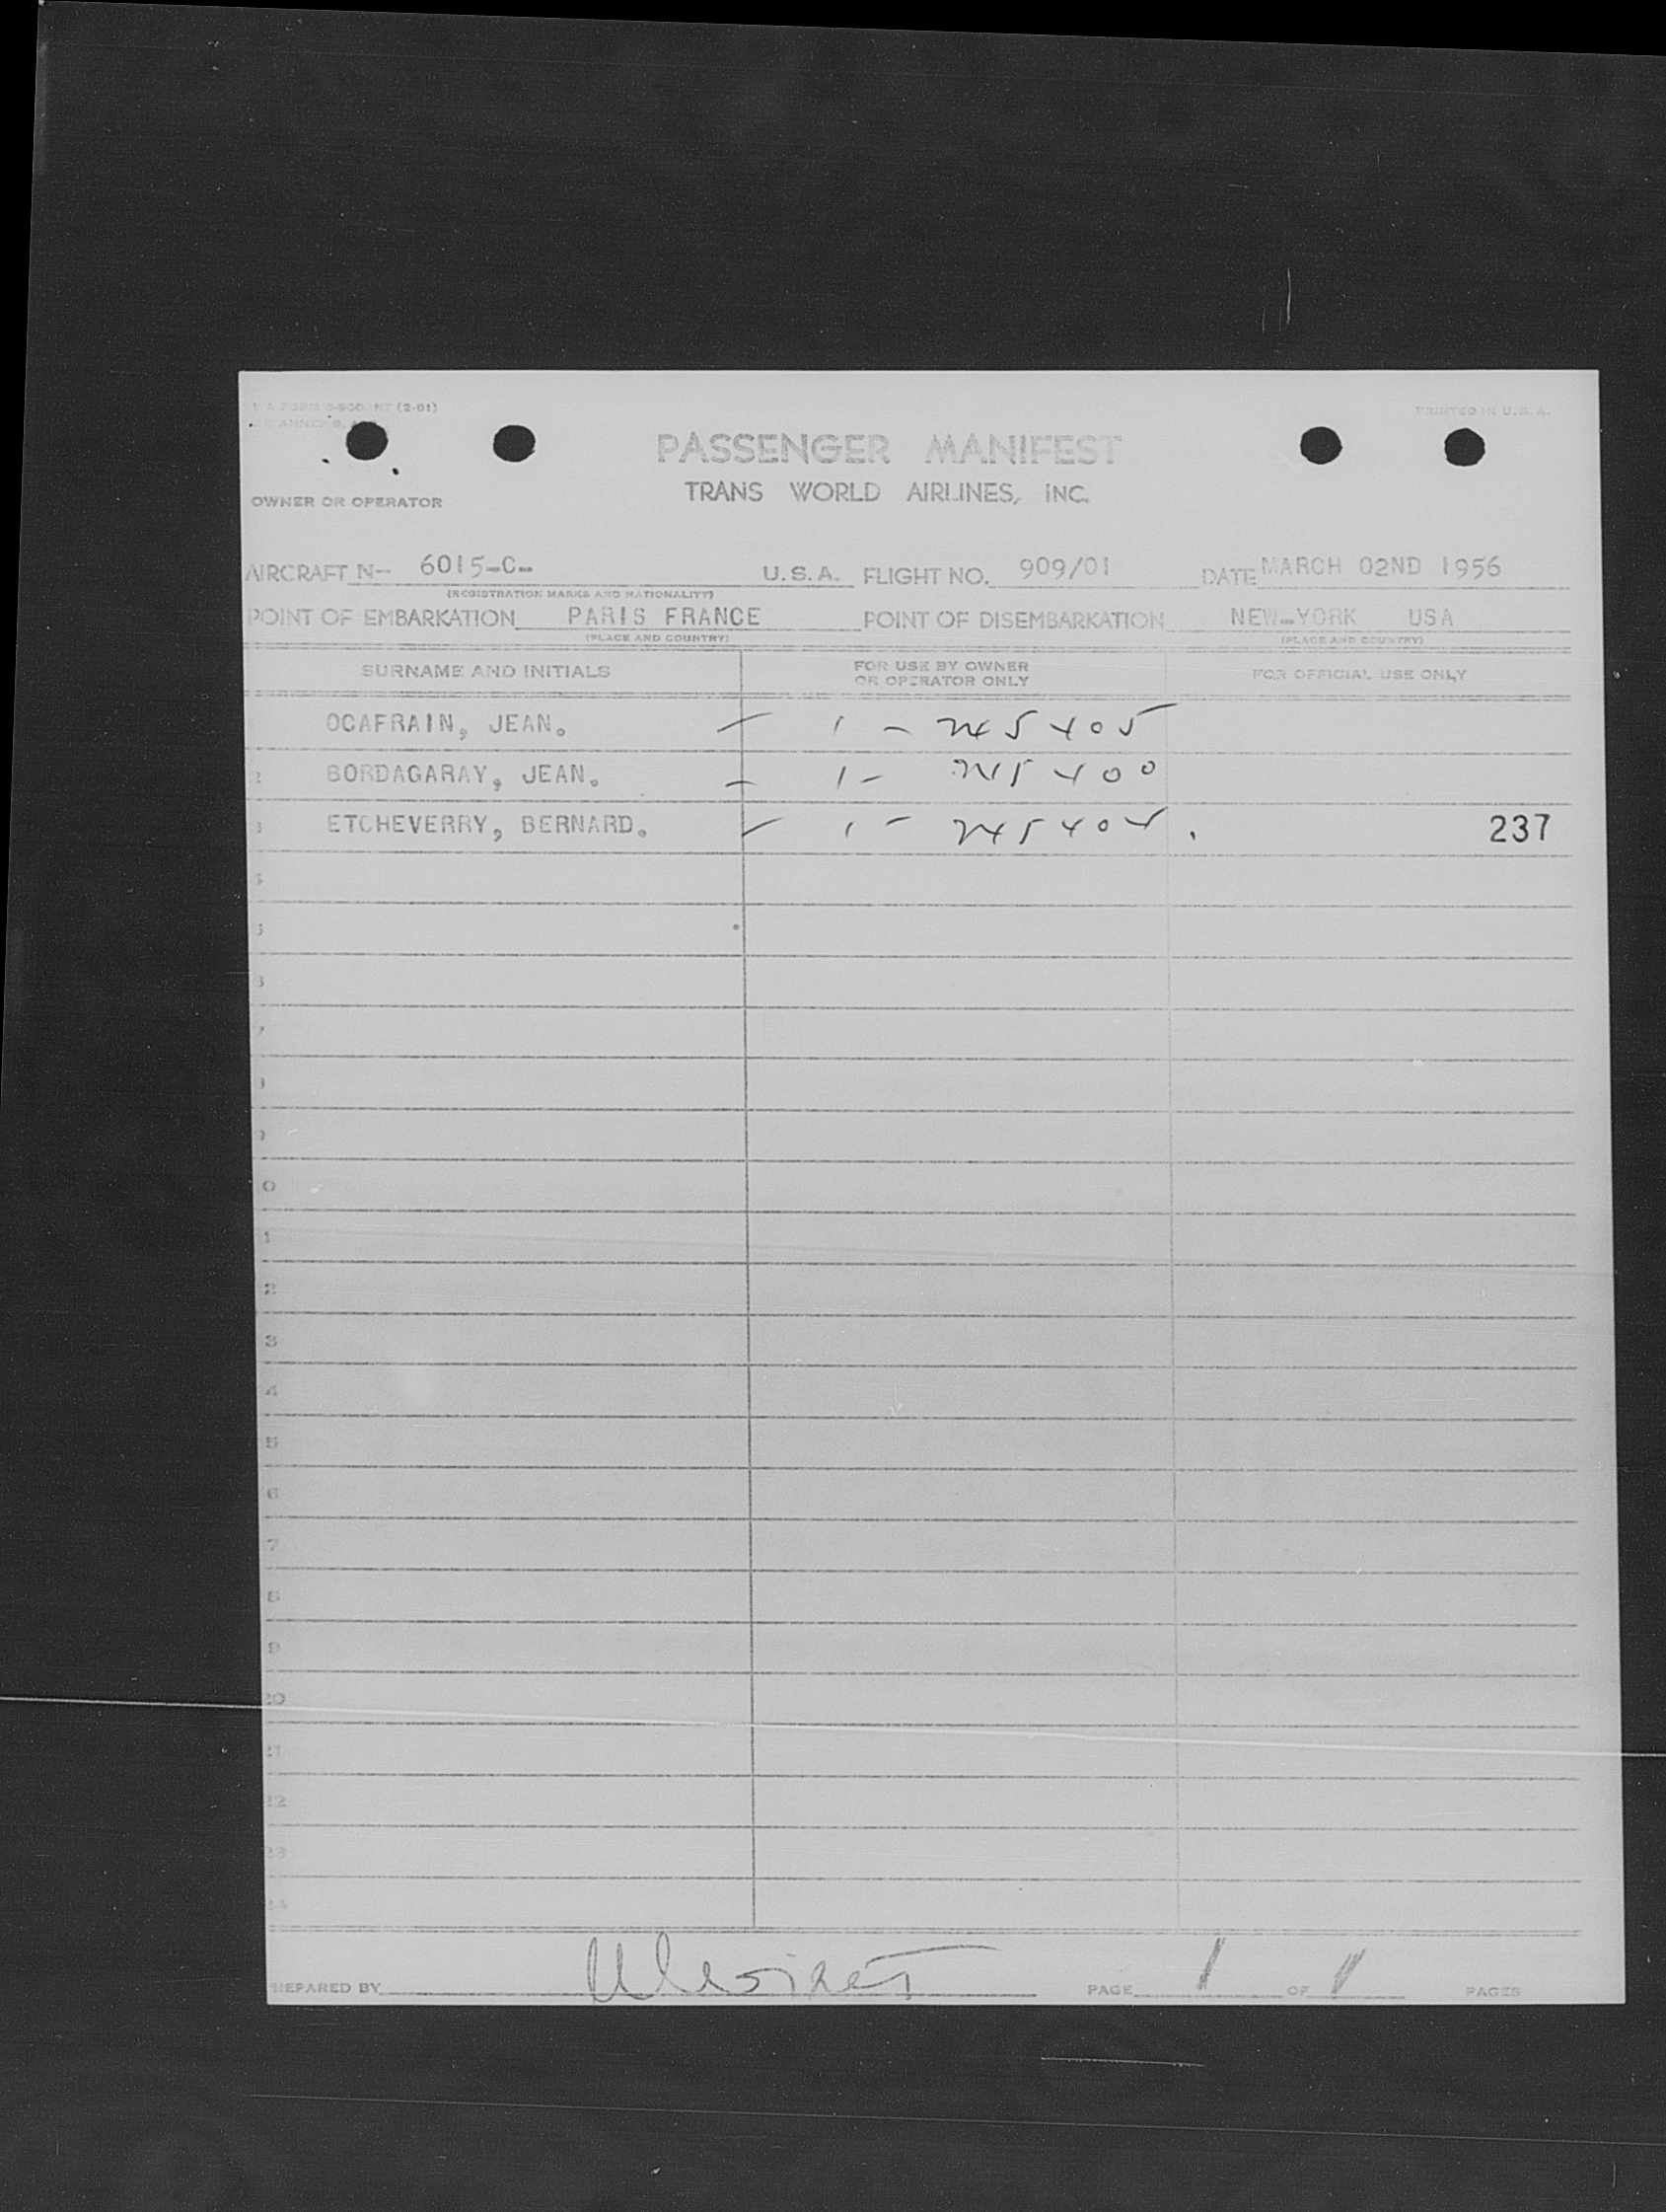 (2-01)
PRINTED IN U.S.A.
PASSENGER MANIFEST
TRANS WORLD AIRLINES, INC.
OWNER OR OPERATOR
AIRCRAFT N- 6015-C- U.S.A. FLIGHT NO. 909/01 DATE MARCH 02ND 1956
(REGISTRATION MARKS AND NATIONALITY)
POINT OF EMBARKATION PARIS FRANCE POINT OF DISEMBARKATION NEW-YORK USA
(PLACE AND COUNTRY) (PLACE AND COUNTRY)
SURNAME AND INITIALS FOR USE BY OWNER OR OPERATOR ONLY FOR OFFICIAL USE ONLY
OCAFRAIN, JEAN. — 1 - 745405
2 BORDAGARAY, JEAN. — 1 - 745400
3 ETCHEVERRY, BERNARD. — 1 - 745404. 237
0
1
2
3
4
5
6
7
8
9
20
21
22
23
PREPARED BY PAGE 1 OF 1 PAGES